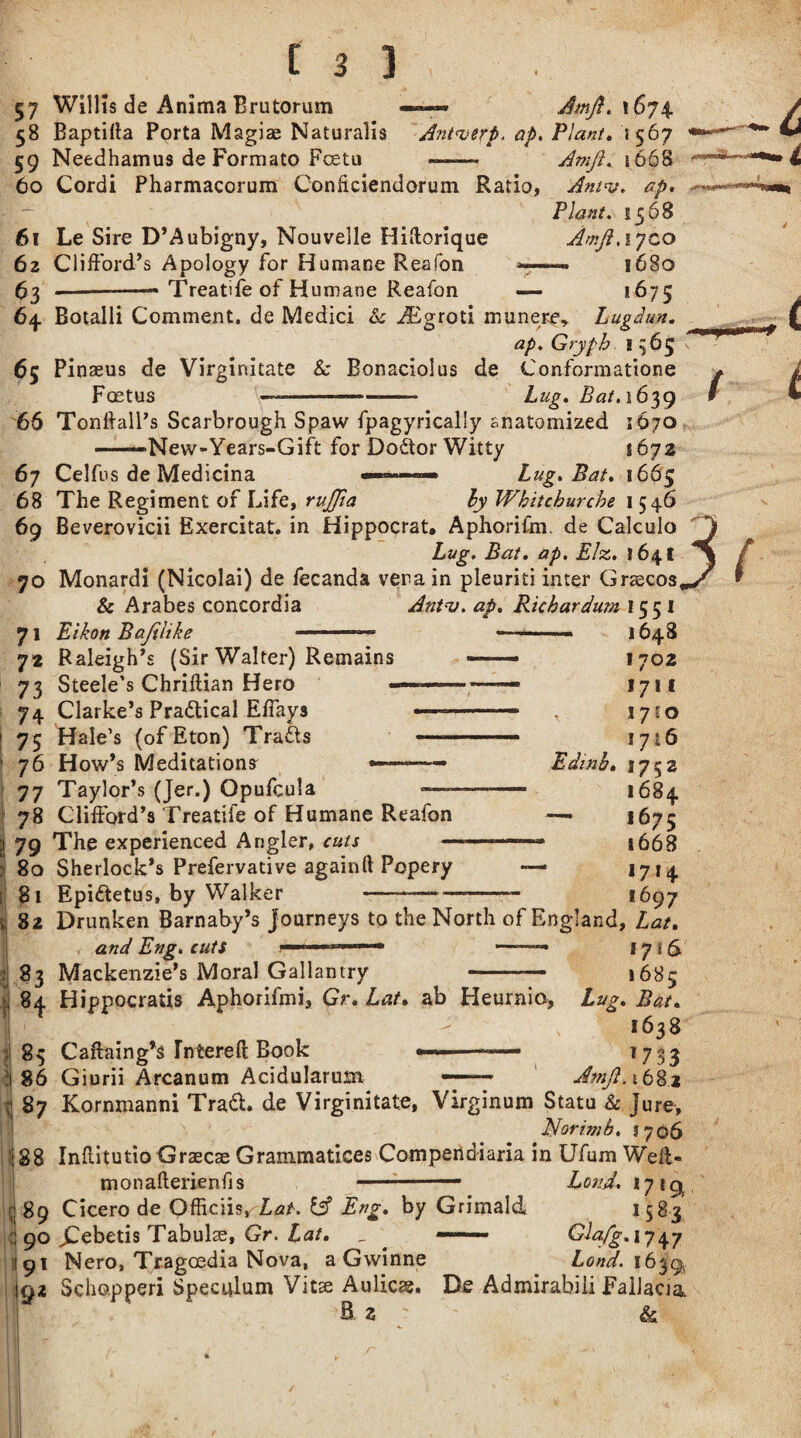 [ 3 ]
57 Willis de Anima Brutorum —— Amſt. 1674
58 Baptiſta Porta Magiæ Naturalis Antwerp. ap. Plant. 1567
59 Needhamus de Formato Fœtu —— Amſt. 1668
60 Cordi Pharmacorum Conficiendorum Ratio, Antv. ap.
Plant. 1568
61 Le Sire D'Aubigny, Nouvelle Hiſtorique Amſt. 1700
62 Clifford's Apology for Humane Reaſon —— 1680
63 ——— Treatiſe of Humane Reaſon — 1675
64 Botalli Comment. de Medici & Ægroti munere, Lugdun.
ap. Gryph 1565
65 Pinæus de Virginitate & Bonaciolus de Conformatione
Fœtus —————— Lug. Bat. 1639
66 Tonſtall's Scarbrough Spaw ſpagyrically anatomized 1670
——New-Years-Gift for Doctor Witty 1672
67 Celſus de Medicina ——— Lug. Bat. 1665
68 The Regiment of Life, ruſſia by Whitchurche 1546
69 Beverovicii Exercitat. in Hippocrat. Aphoriſm. de Calculo
Lug. Bat. ap. Elz. 1641
70 Monardi (Nicolai) de ſecanda vena in pleuriti inter Græcos
& Arabes concordia Antv. ap. Richardum 1551
71 Eikon Baſilike ——— —— 1648
72 Raleigh's (Sir Walter) Remains —— 1702
73 Steele's Chriſtian Hero ————— 1711
74 Clarke's Practical Eſſays ——— 1710
75 Hale's (of Eton) Tracts ——— 1716
76 How's Meditations ——— Edinb. 1752
77 Taylor's (Jer.) Opuſcula ——— 1684
78 Clifford's Treatiſe of Humane Reaſon — 1675
79 The experienced Angler, cuts ——— 1668
80 Sherlock's Preſervative againſt Popery — 1714
81 Epictetus, by Walker ————— 1697
82 Drunken Barnaby's Journeys to the North of England, Lat.
and Eng. cuts ——— —— 1716
83 Mackenzie's Moral Gallantry ——— 1685
84 Hippocratis Aphoriſmi, Gr. Lat. ab Heurnio, Lug. Bat.
1638
85 Caſtaing's Intereſt Book ——— 1733
86 Giurii Arcanum Acidularum —— Amſt. 1682
87 Kornmanni Tract. de Virginitate, Virginum Statu & Jure,
Norimb. 1706
88 Inſtitutio Græcæ Grammatices Compendiaria in Uſum Weſt-
monaſterienſis ——— Lond. 1719
89 Cicero de Officiis, Lat. & Eng. by Grimald 1583
90 Cebetis Tabulæ, Gr. Lat. —— Glaſg. 1747
91 Nero, Tragœdia Nova, a Gwinne Lond. 1639
92 Schopperi Speculum Vitæ Aulicæ. De Admirabili Fallacia
B 2 &